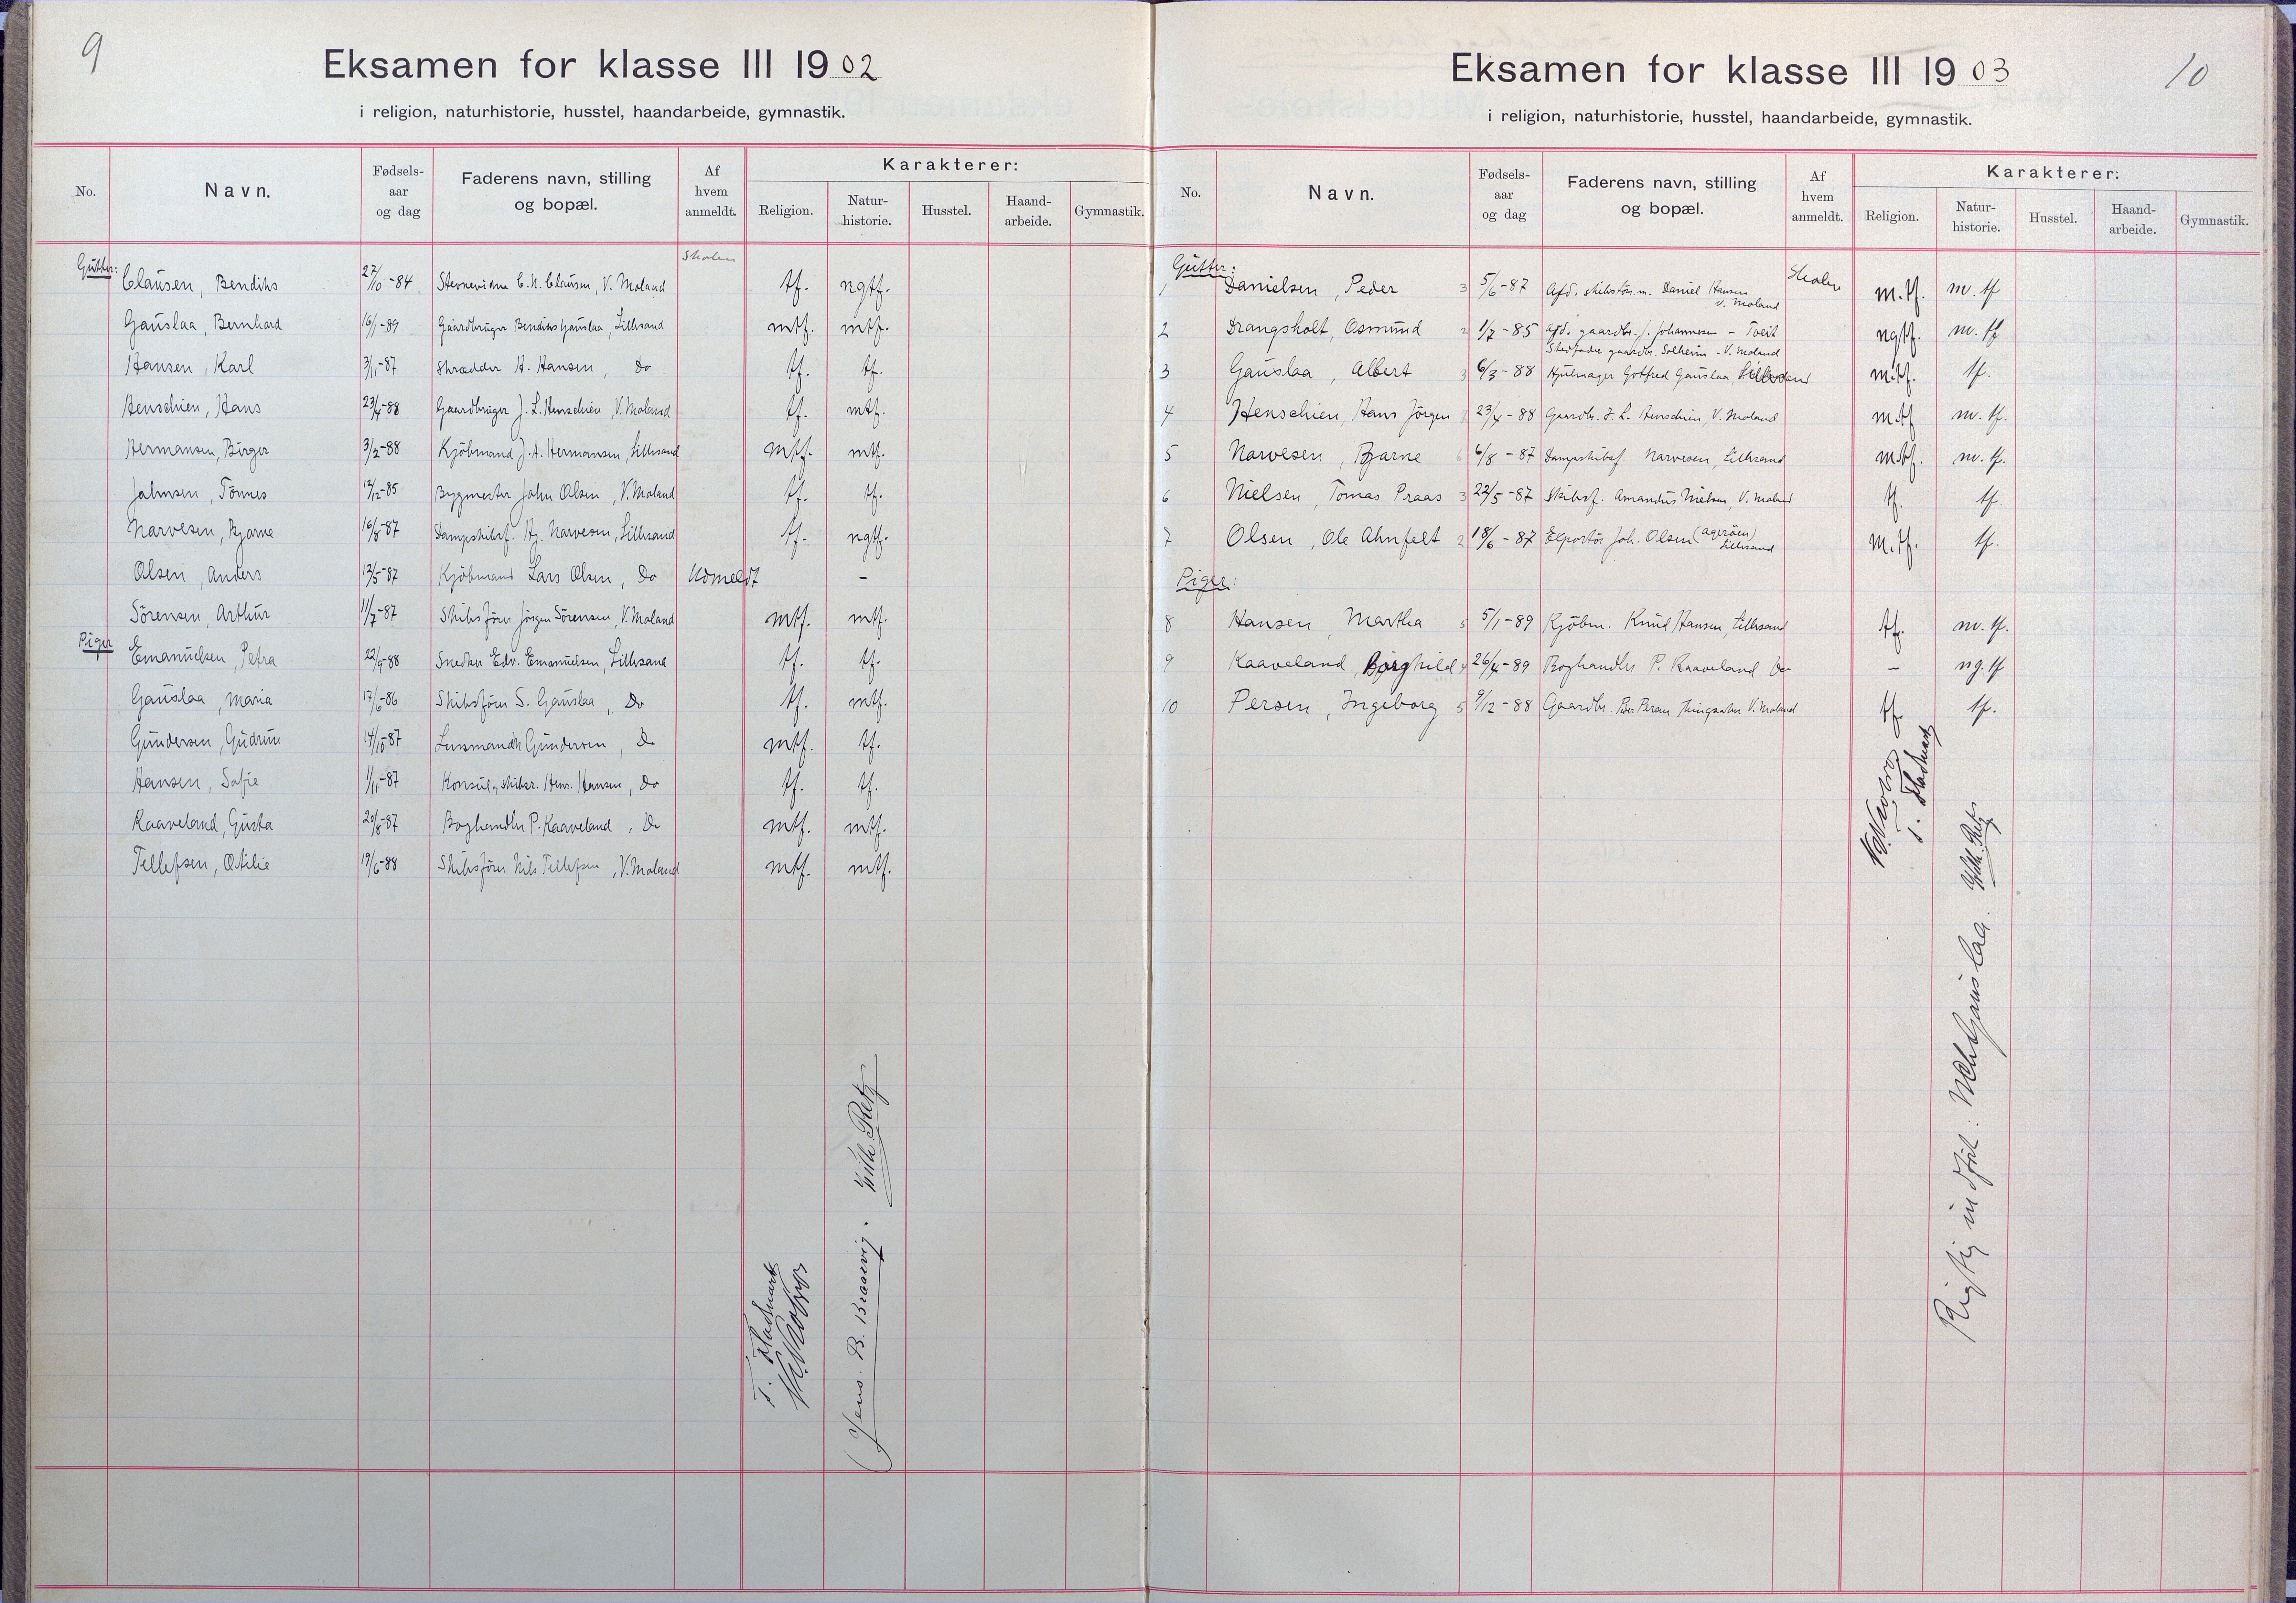 9
Eksamen for klasse III 1902
i religion, naturhistorie, husstel, haandarbeide, gymnastik.
No. Navn. Fødsels-aar og dag Faderens navn, stilling og bopæl. Af hvem anmeldt. Karakterer:
Religion. Natur-historie. Husstel. Haand-arbeide. Gymnastik.
Gutter: Skolen
Clausen, Bendiks 27/10-84 C. N. Clausen, V. Moland tf. ngtf.
Gauslaa, Bernhard 16/1-89 Gaardbruger Bendiks Gauslaa, Lillesand mtf. mtf.
Hansen, Karl 3/11-87 Skrædder H. Hansen, Do tf. tf.
Henschien, Hans 23/4-88 Gaardbruger J. L. Henschien, V. Moland tf. mtf.
Hermansen, Birger 3/2-88 Kjöbmand J. A. Hermansen, Lillesand mtf. mtf.
Johnsen, Tönnes 12/12-85 Bygmester John Olsen, V. Moland tf. tf.
Narvesen, Bjarne 16/8-87 Dampskibsf. Narvesen, Lillesand tf. ngtf.
Olsen, Anders 12/5-87 Kjöbmand Lars Olsen, Do Udmeldt -
Sörensen, Arthur 11/7-87 Skibsförer Jörgen Sörensen, V. Moland mtf. mtf.
Piger
Emanuelsen, Petra 22/9-88 Snedker Edv. Emanuelsen, Lillesand tf. tf.
Gauslaa, Maria 17/6-86 Skibsförer S. Gauslaa, Do tf. mtf.
Gundersen, Gudrun 14/10-87 Lensmand Gundersen, Do mtf. tf.
Hansen, Sofie 1/11-87 Konsul, skibsr. Hansen, Do tf. tf.
Kaaveland, Gusta 20/8-87 Boghandler P. Kaaveland, Do mtf. mtf.
Tellefsen, Otilie 19/6-88 Skibsförer Nils Tellefsen, V. Moland mtf. mtf.
Jens. B. Braavig. Vilh. Retz
10
Eksamen for klasse III 1903
i religion, naturhistorie, husstel, haandarbeide, gymnastik.
No. Navn. Fødsels-aar og dag Faderens navn, stilling og bopæl. Af hvem anmeldt. Karakterer:
Religion. Natur-historie. Husstel. Haand-arbeide. Gymnastik.
Gutter:
1 Danielsen, Peder 3 5/6-87 Afd. skibstöm.m. Daniel Hansen V. Moland Skolen m.tf. m.tf
2 Drangsholt, Osmund 2 1/7-85 Afd. gaardbr. J. Johannesen - Tveit ngtf. m.tf
Stedfader gaardbr. Solheim - V. Moland
3 Gauslaa, Albert 3 6/3-88 Hjulmager Gotfred Gauslaa, Lillesand m.tf. tf.
4 Henschien, Hans Jörgen 23/4-88 Gaardbr. J. L. Henschien, V. Moland m.tf m.tf.
5 Narvesen, Bjarne 6/8-87 Dampskibsf. Narvesen, Lillesand m.tf. m.tf.
6 Nielsen, Tomas Praas 3 22/5-87 Skibsf. Amandus Nielsen, V. Moland tf. tf
7 Olsen, Ole Ahnfelt 2 18/6-87 Joh. Olsen (Ageröen) Lillesand m.tf. tf.
Piger:
8 Hansen, Martha 5 5/1-89 Kjöbm. Knud Hansen, Lillesand tf. m.tf.
9 Kaaveland, Borghild 4 26/4-89 Boghandler P. Kaaveland Do - ng.tf
10 Persen, Ingeborg 5 9/12-88 Gaardbr. Peder Persen V. Moland tf. tf.
Rigtig indfört: Gauslaa. Vilh. Retz